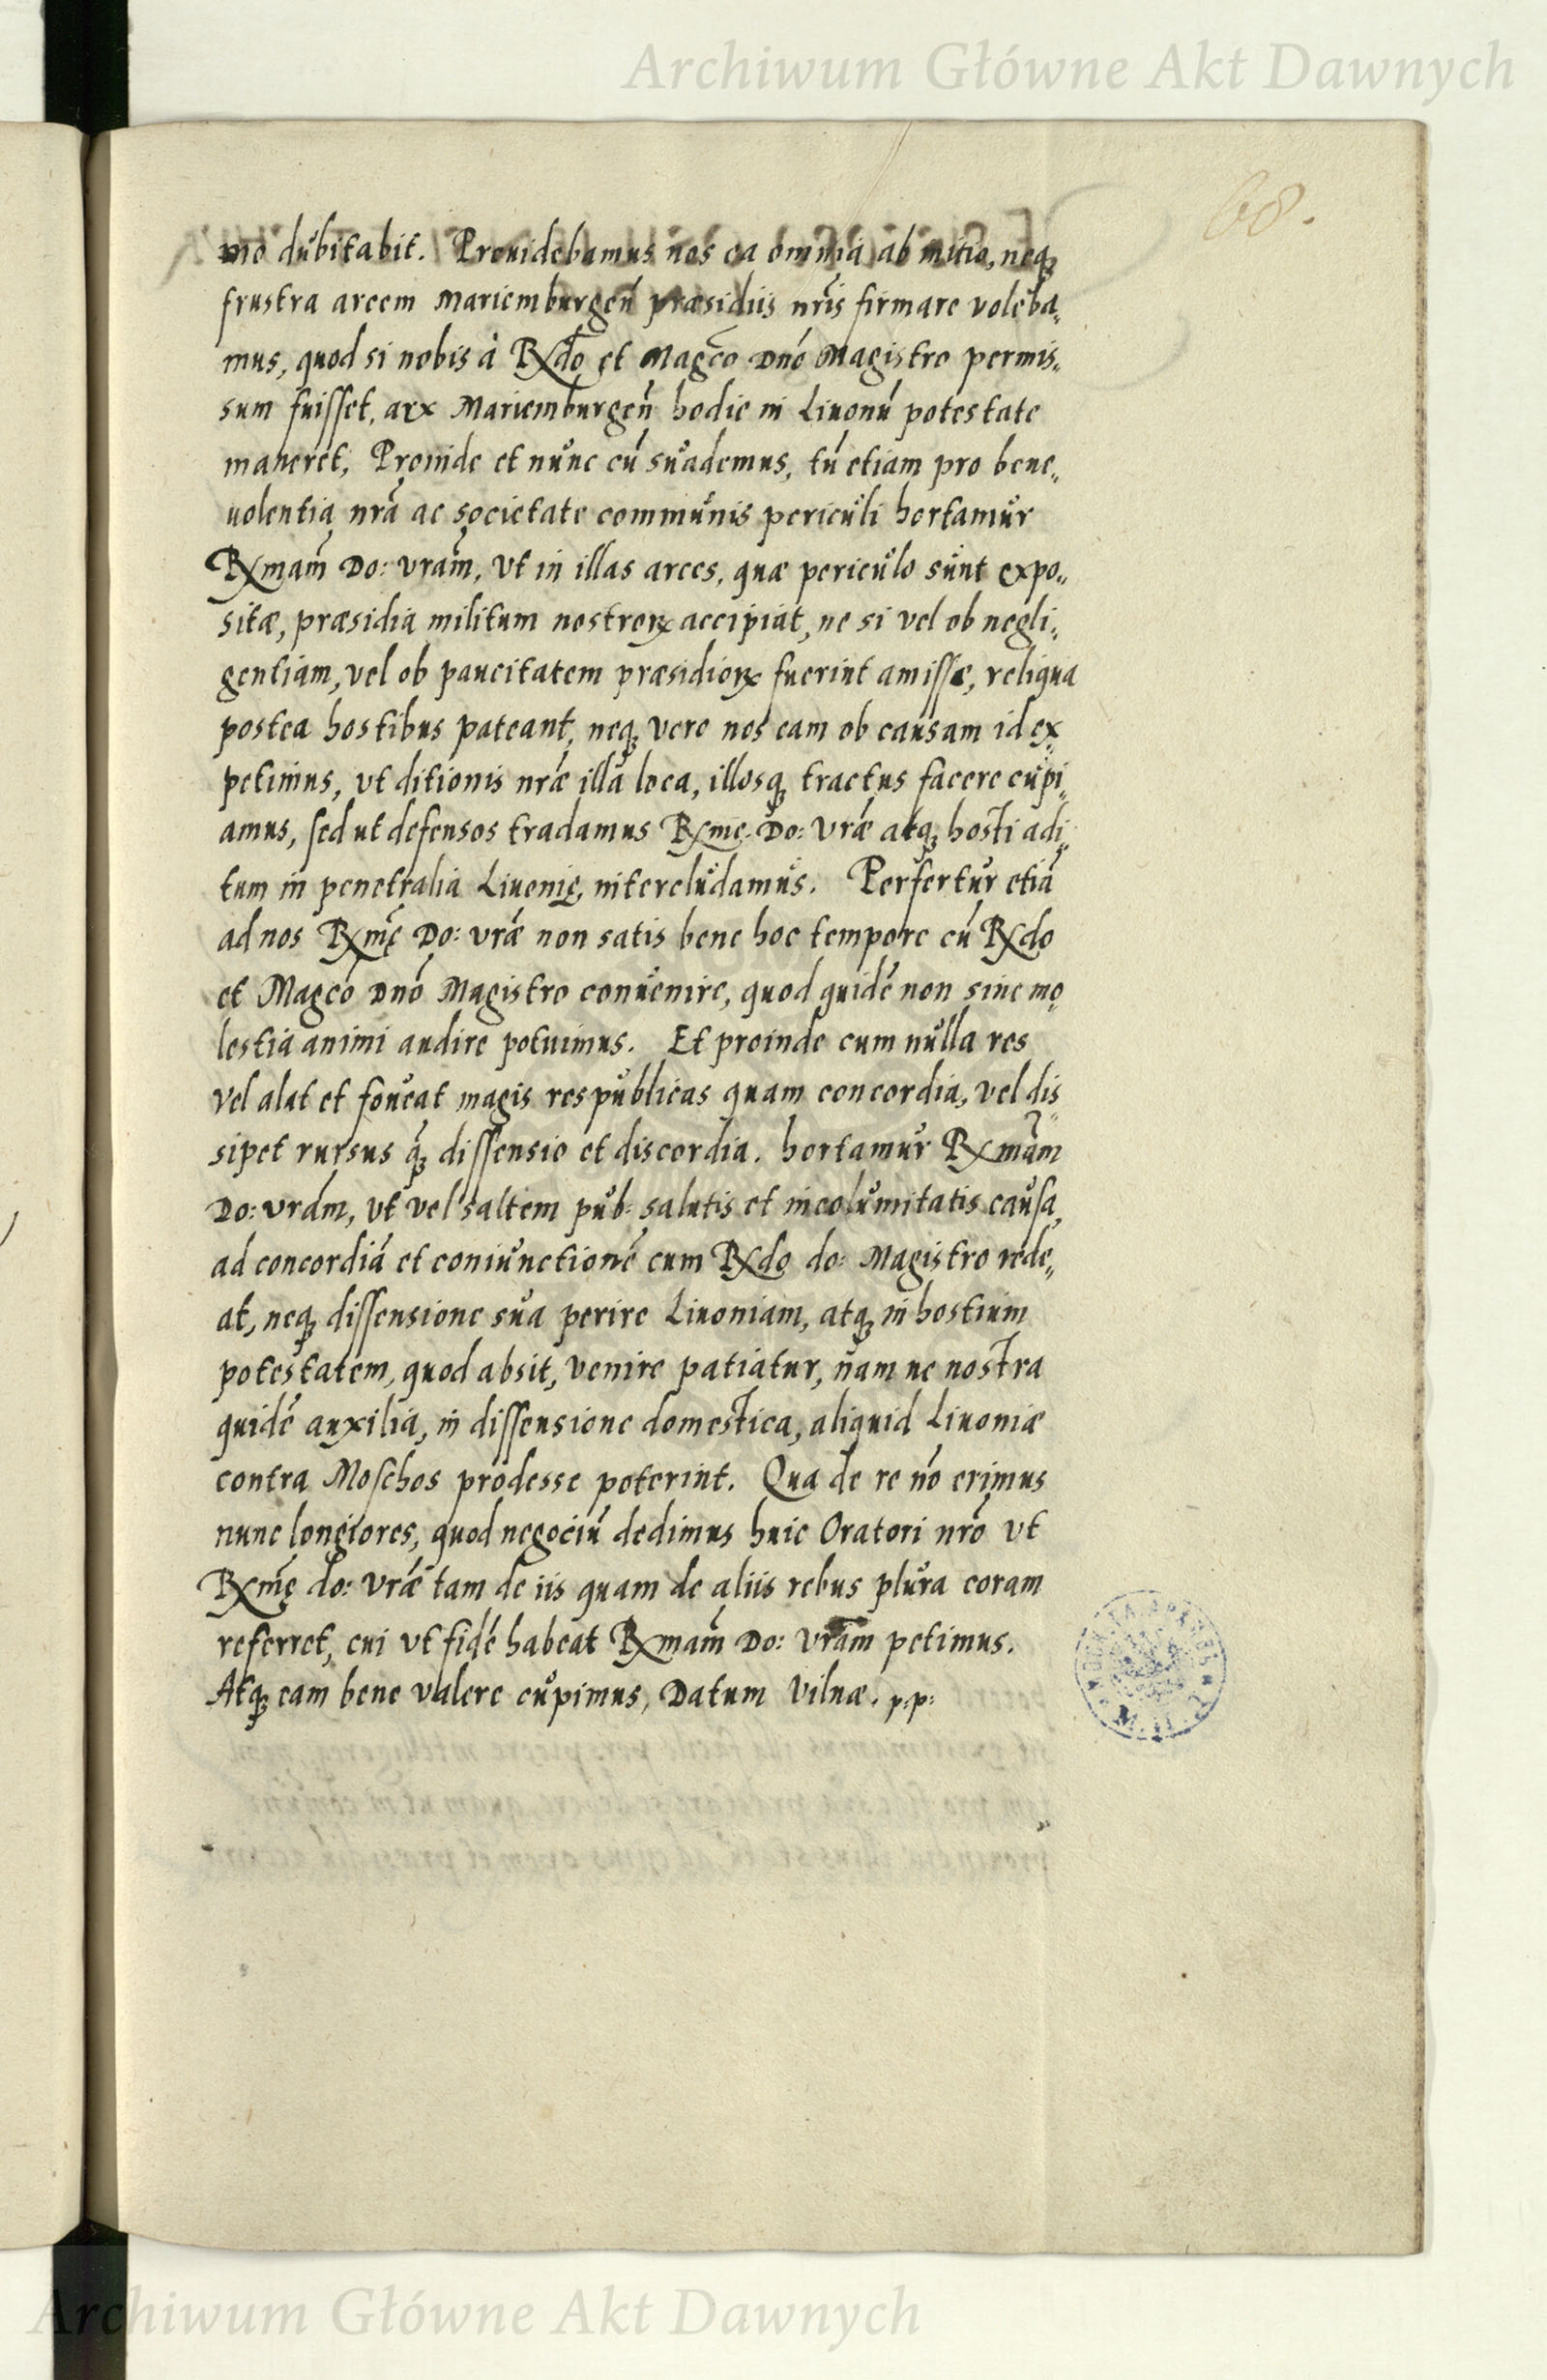 Archiwum Główne Akt Dawnych
68.
mo dubitabit. Prouidebamus nos ea omnia ab initio, neq;
frustra arcem Mariemburgeñ præsidiis nr̃is firmare voleba„
mus, quod si nobis à Rx̃do et Magc̃o Dnõ Magistro permis„
sum fuisset, arx Mariemburgeñ hodie in Liuonũ potestate
maneret, Proinde et nunc cũ suademus, tũ etiam pro bene„
uolentia nr̃a ac societate communis periculi hortamur
Rx̃mam̃ Do: vram̃, vt in illas arces, quæ periculo sunt expo„
sitæ, præsidia militum nostrorꝝ accipiat, ne si vel ob negli„
gentiam, vel ob paucitatem præsidiorꝝ fuerint amissæ, reliqua
postea hostibus pateant, neq; vero nos eam ob causam id ex„
petimus, vt ditionis nr̃æ illa loca, illosq; tractus facere cupi„
amus, sed ut defensos tradamus Rx̃mę Do: Vr̃æ atq; hosti adi„
tum in penetralia Liuonię, intercludamus. Perfertur etiã
ad nos Rx̃mę Do: vr̃æ non satis bene hoc tempore cũ Rx̃do
et Magc̃o Dnõ Magistro conuenire, quod quidẽ non sine mo„
lestia animi audire potuimus. Et proinde cum nulla res
vel alat et foueat magis respublicas quam concordia, vel dis„
sipet rursus q̃ dissensio et discordia. hortamur Rx̃mam̃
Do: vram̃, vt vel saltem pub: salutis et incolumitatis causa,
ad concordiã et coniunctionẽ cum Rx̃do do: Magistro rede„
at, neq; dissensione sua perire Liuoniam, atq; in hostium
potestatem, quod absit, venire patiatur, nam ne nostra
quidẽ auxilia, in dissensione domestica, aliquid Liuoniæ
contra Moschos prodesse poterint. Qua de re nõ erimus
nunc longiores, quod negociũ dedimus huic Oratori nrõ vt
Rx̃mę do: vr̃æ tam de iis quam de aliis rebus plura coram
referret, cui vt fidẽ habeat Rx̃mam̃ Do: vram̃ petimus.
Atq; eam bene valere cupimus, Datum Vilnæ. p:p:
Archiwum Główne Akt Dawnych